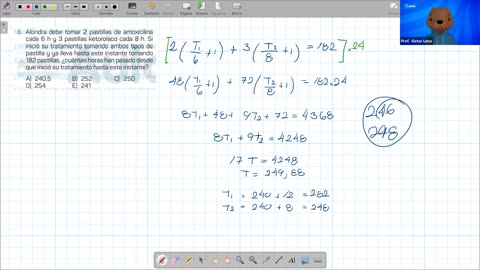 3. Alondra debe tomar 2 pastillas de amoxicilina
cada 6 h y 3 pastillas ketorolaco cada 8 h. Si
inició su tratamiento tomando ambos tipos de
pastilla y ya lleva hasta este instante tomando
182 pastillas, ¿cuántas horas han pasado desde
que inició su tratamiento hasta este instante?
A) 240,5 B) 252 C) 250
D) 254 E) 241
[2(T₁/6 + 1) + 3(T₂/8 + 1) = 182] . 24
48(T₁/6 + 1) + 72(T₂/8 + 1) = 182.24
8T₁ + 48 + 9T₂ + 72 = 4368
8T₁ + 9T₂ = 4248
17 T = 4248
T = 249,88
T₁ = 240 + 12 = 252
T₂ = 240 + 8 = 248
246
248
Prof. Victor Lima